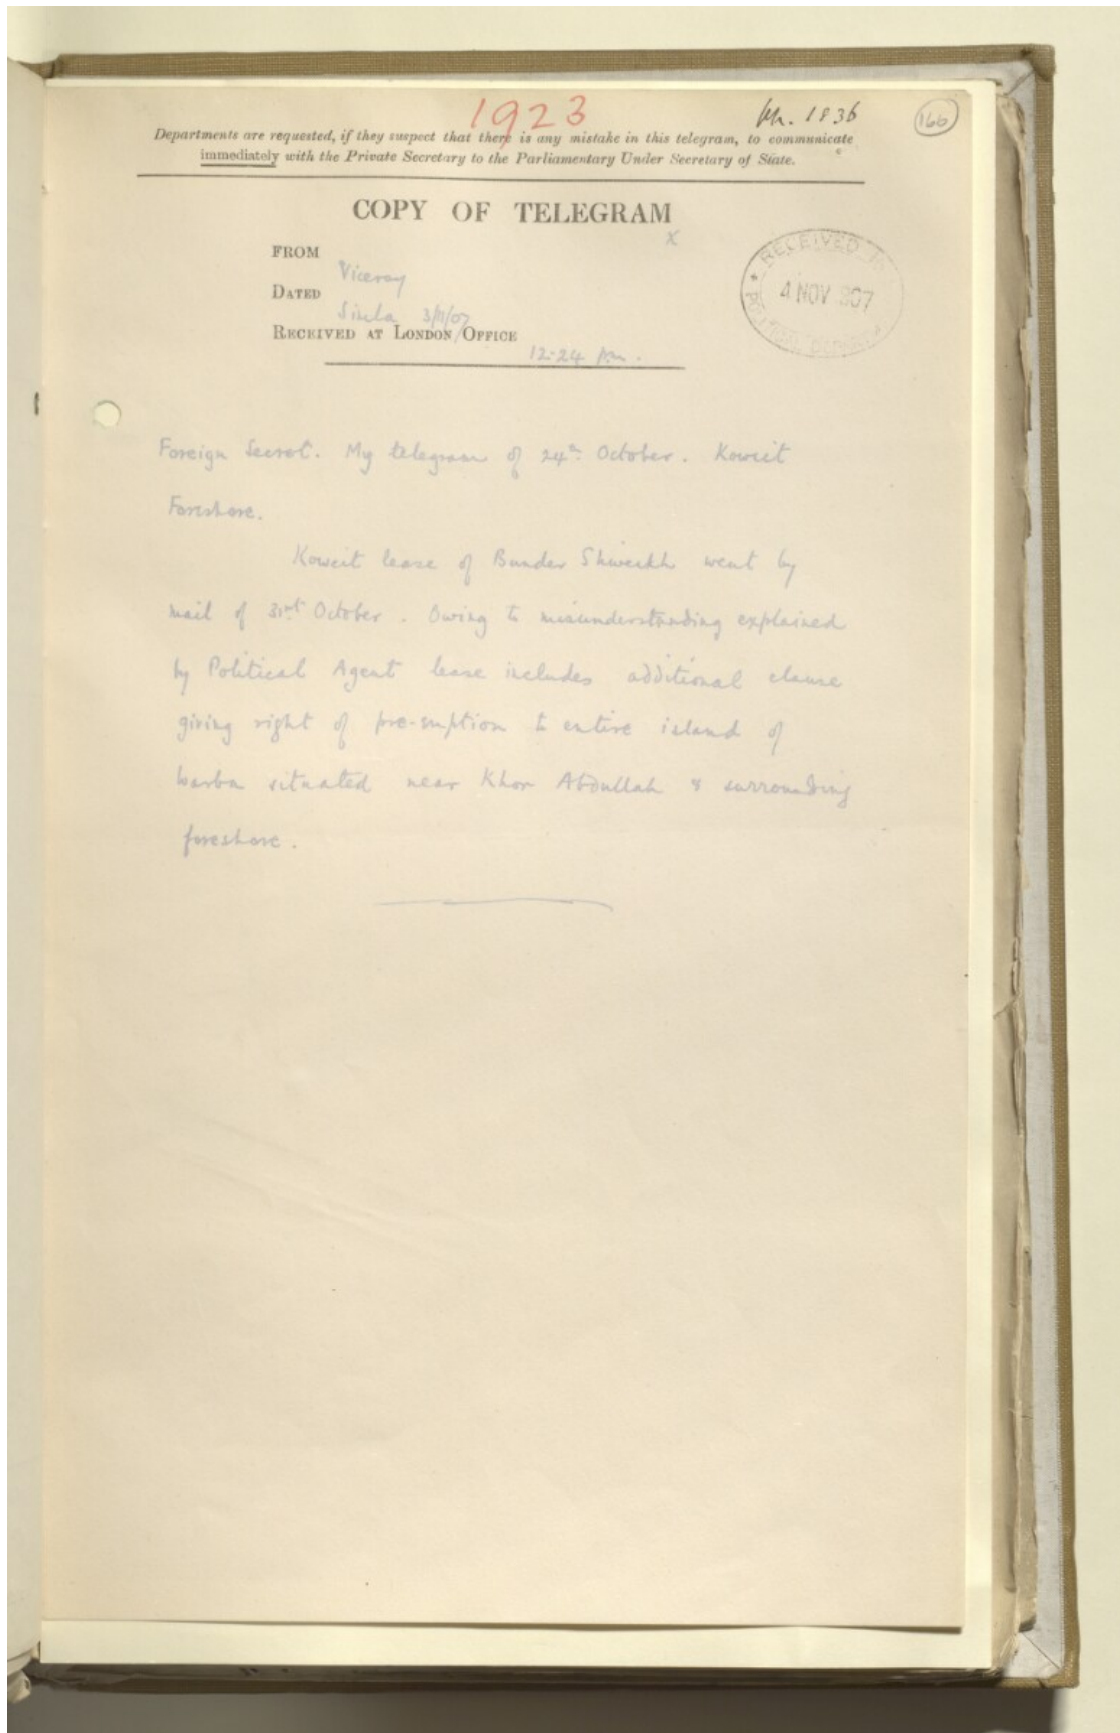 1923
1836
166
Departments are requested, if they suspect that there is any mistake in this telegram, to communicate
immediately with the Private Secretary to the Parliamentary Under Secretary of State.
COPY OF TELEGRAM
x
FROM
Viceroy
DATED
Simla 3/11/07
RECEIVED AT LONDON OFFICE
12.24 pm.
RECEIVED IN
4 NOV 1907
POLITICAL DEPARTMENT
Foreign Secret. My telegram of 24th October. Koweit
Foreshore.
Koweit lease of Bunder Shweikh went by
mail of 31st October. Owing to misunderstanding explained
by Political Agent lease includes additional clause
giving right of pre-emption to entire island of
warba situated near Khor Abdullah & surrounding
foreshore.